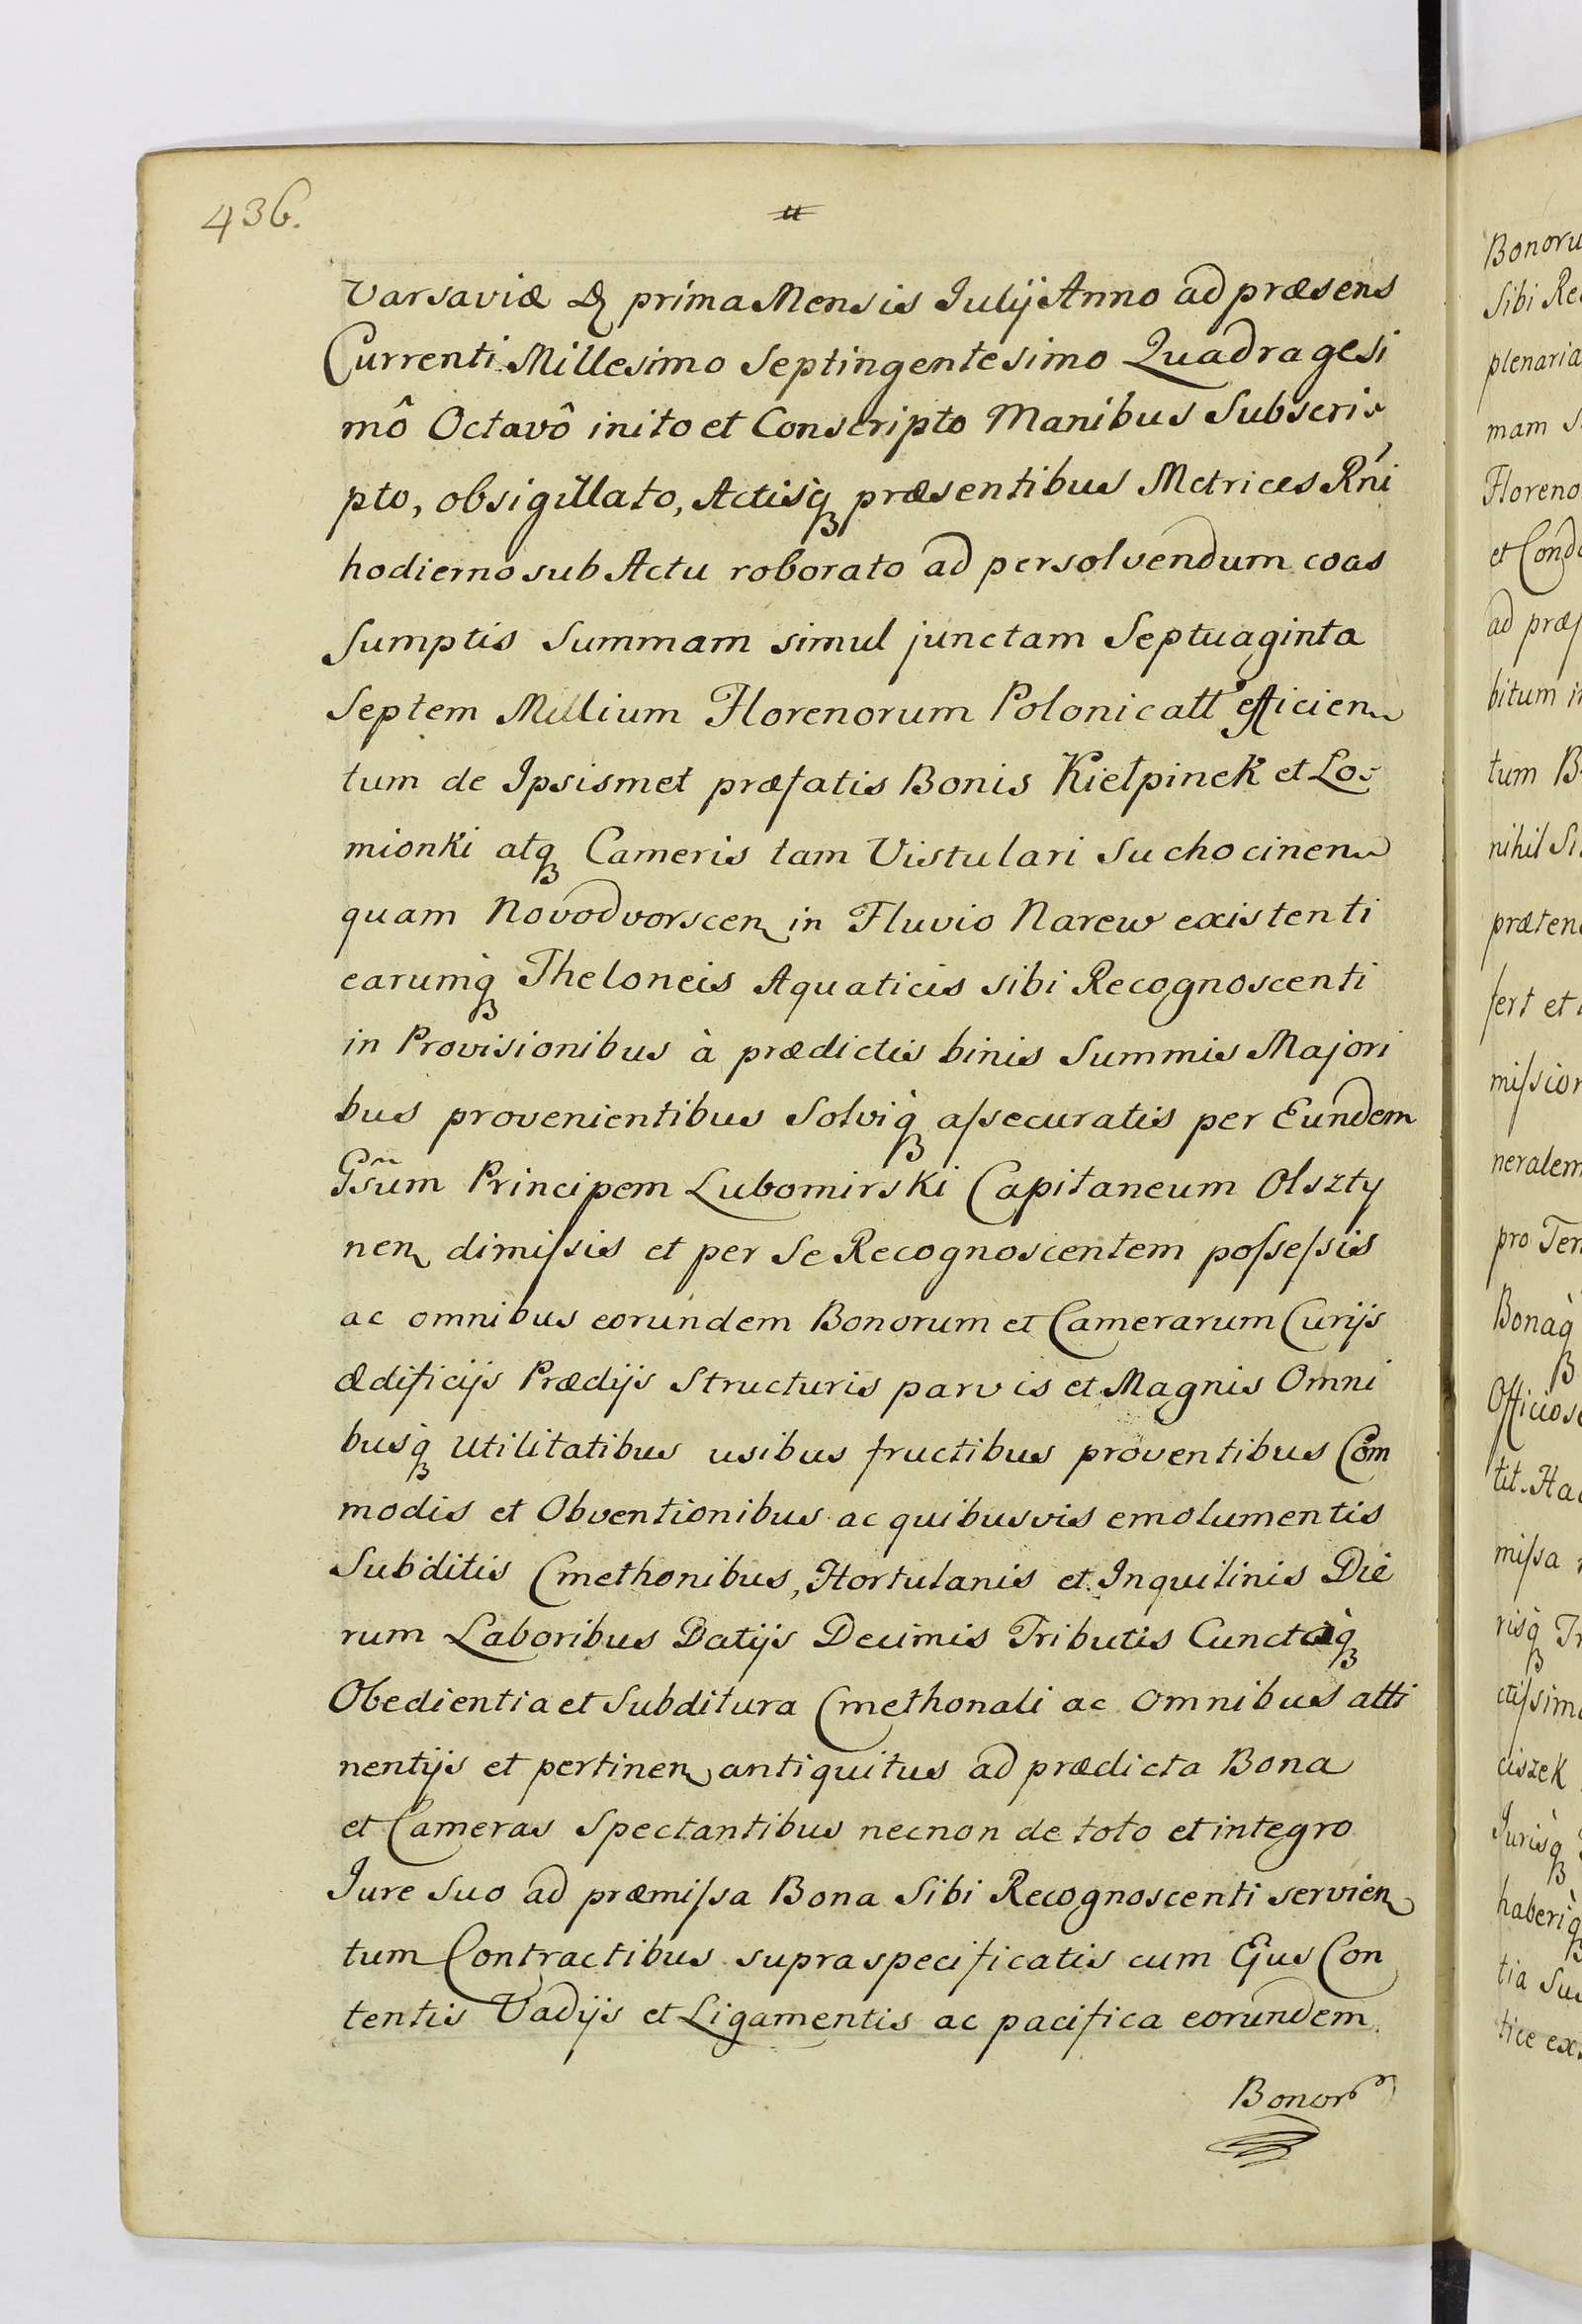 436.
Varsaviæ prima Mensis Iulij Anno ad præsens
Currenti Millesimo Septingentesimo Quadragesi
mô Octavô inito et Conscripto Manibus Subscri
pto, obsigillato, Actisq præsentibus Metrices Rni
hodierno sub Actu roborato ad persolvendum coas
Sumptis Summam simul junctam Septuaginta
Septem Millium Florenorum Polonicall efficien
tum de Ipsismet præfatis Bonis Kiełpinek et Lo
mionki atq Cameris tam Vistulari Suchocinen
quam Novodvorscen in Fluvio Narew existenti
earumq Theloneis Aquaticis sibi Recognoscenti
in Provisionibus à prædictis binis Summis Majori
bus provenientibus Solviq aſsecuratis per Eundem
Gsum Principem Lubomirski Capitaneum Olszty
nen dimiſsis et per Se Recognoscentem poſseſsis
ac omnibus eorundem Bonorum et Camerarum Curijs
ædificijs Prædijs Structuris parvis et Magnis Omni
busq utilitatibus usibus fructibus proventibus Com
modis et Obventionibus ac quibusvis emolumentis
Subditis Cmethonibus, Hortulanis et Inquilinis Die
rum Laboribus Datijs Decimis Tributis Cunctaq
Obedientia et Subditura Cmethonali ac omnibus atti
nentijs et pertinen antiquitus ad prædicta Bona
et Cameras Spectantibus necnon de toto et integro
Iure Suo ad præmiſsa Bona Sibi Recognoscenti servien
tum Contractibus supraspecificatis cum Ejus Con
tentis Vadijs et Ligamentis ac pacifica eorundem
Bonor
Bonoru
Sibi Re
plenaria
mam
Floreno
et Cond
ad præſ
bitum
tum B
nihil Si
præten
fert et
miſsion
neralem
pro Ter
Bonaq
Officios
tit. Hac
miſsa
risq
ctiſsim
ciszek
Jurisq
haberiq
tia Su
tice ex